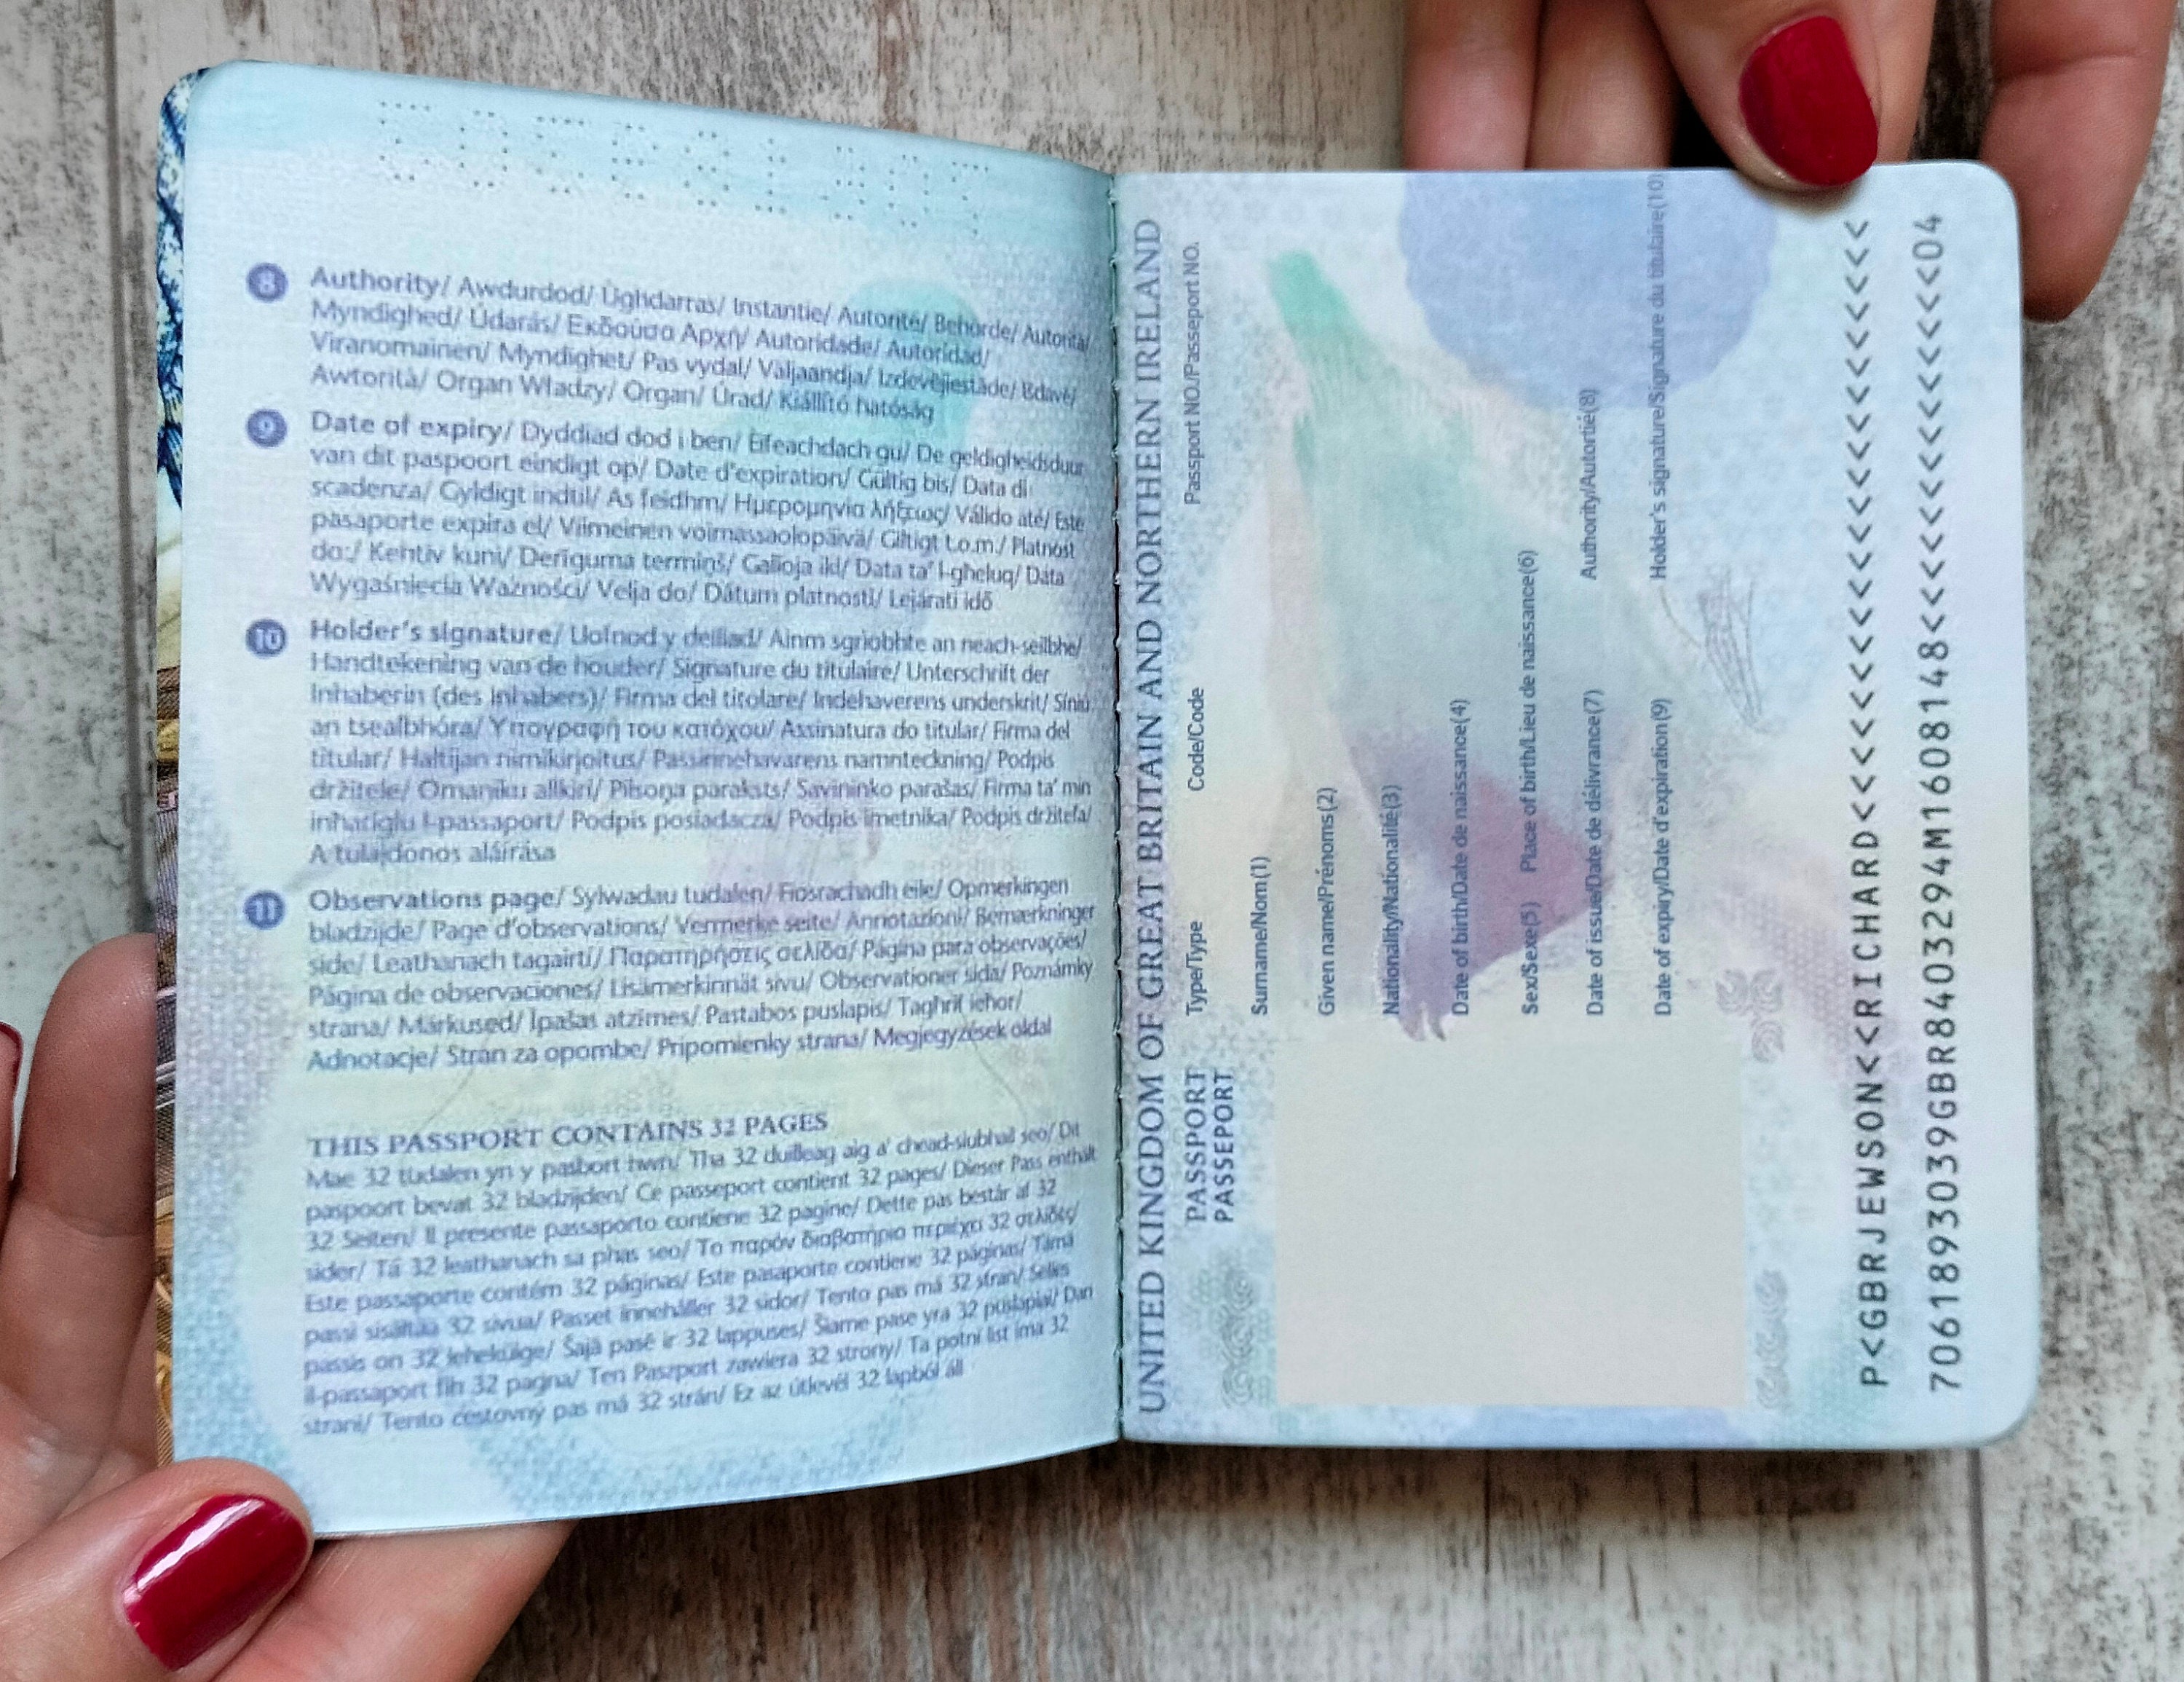 8 Authority/ Awdurdod/ Ùghdarras/ Instantie/ Autorité/ Behörde/ Autorità/
Myndighed/ Údarás/ Εκδούσα Αρχή/ Autoridade/ Autoridad/
Viranomainen/ Myndighet/ Pas vydal/ Väljaandja/ Izdevējiestāde/ Išdavė/
Awtorità/ Organ Władzy/ Organ/ Úrad/ Kiállító hatóság
9 Date of expiry/ Dyddiad dod i ben/ Èifeachdach gu/ De geldigheidsduur
van dit paspoort eindigt op/ Date d'expiration/ Gültig bis/ Data di
scadenza/ Gyldigt indtil/ As feidhm/ Ημερομηνία λήξεως/ Válido até/ Este
pasaporte expira el/ Viimeinen voimassaolopäivä/ Giltigt t.o.m./ Platnost
do:/ Kehtiv kuni/ Derīguma termiņš/ Galioja iki/ Data ta' l-gheluq/ Data
Wygaśnięcia Ważności/ Velja do/ Dátum platnosti/ Lejárati idő
10 Holder's signature/ Llofnod y deiliad/ Ainm sgrìobhte an neach-seilbhe/
Handtekening van de houder/ Signature du titulaire/ Unterschrift der
Inhaberin (des Inhabers)/ Firma del titolare/ Indehaverens underskrit/ Síniú
an tsealbhóra/ Υπογραφή του κατόχου/ Assinatura do titular/ Firma del
titular/ Haltijan nimikirjoitus/ Passinnehavarens namnteckning/ Podpis
držitele/ Omaniku allkiri/ Pilsoņa paraksts/ Savininko parašas/ Firma ta' min
inħariġlu l-passaport/ Podpis posiadacza/ Podpis imetnika/ Podpis držiteľa/
A tulajdonos aláírása
11 Observations page/ Sylwadau tudalen/ Fiosrachadh eile/ Opmerkingen
bladzijde/ Page d'observations/ Vermerke seite/ Annotazioni/ Bemærkninger
side/ Leathanach tagairtí/ Παρατηρήσεις σελίδα/ Página para observações/
Página de observaciones/ Lisämerkinnät sivu/ Observationer sida/ Poznámky
strana/ Märkused/ Īpašas atzīmes/ Pastabos puslapis/ Tagħrif ieħor/
Adnotacje/ Stran za opombe/ Pripomienky strana/ Megjegyzések oldal
THIS PASSPORT CONTAINS 32 PAGES
Mae 32 tudalen yn y pasbort hwn/ Tha 32 duilleag aig a' chead-siubhail seo/ Dit
paspoort bevat 32 bladzijden/ Ce passeport contient 32 pages/ Dieser Pass enthält
32 Seiten/ Il presente passaporto contiene 32 pagine/ Dette pas består af 32
sider/ Tá 32 leathanach sa phas seo/ Το παρόν διαβατήριο περιέχει 32 σελίδες/
Este passaporte contém 32 páginas/ Este pasaporte contiene 32 páginas/ Tämä
passi sisältää 32 sivua/ Passet innehåller 32 sidor/ Tento pas má 32 stran/ Selles
passis on 32 lehekülge/ Šajā pasē ir 32 lappuses/ Šiame pase yra 32 puslapiai/ Dan
il-passaport fih 32 paġna/ Ten Paszport zawiera 32 strony/ Ta potni list ima 32
strani/ Tento cestovný pas má 32 strán/ Ez az útlevél 32 lapból áll
UNITED KINGDOM OF GREAT BRITAIN AND NORTHERN IRELAND
PASSPORT Type/Type Code/Code Passport NO./Passeport NO.
PASSEPORT
Surname/Nom(1)
Given name/Prénoms(2)
Nationality/Nationalité(3)
Date of birth/Date de naissance(4)
Sex/Sexe(5) Place of birth/Lieu de naissance(6)
Date of issue/Date de délivrance(7) Authority/Autortié(8)
Date of expiry/Date d'expiration(9) Holder's signature/Signature du titulaire(10)
P<GBRJEWSON<<RICHARD<<<<<<<<<<<<<<<<<<<<<<<<
7061893039GBR8403294M1608148<<<<<<<<<<<<<<04